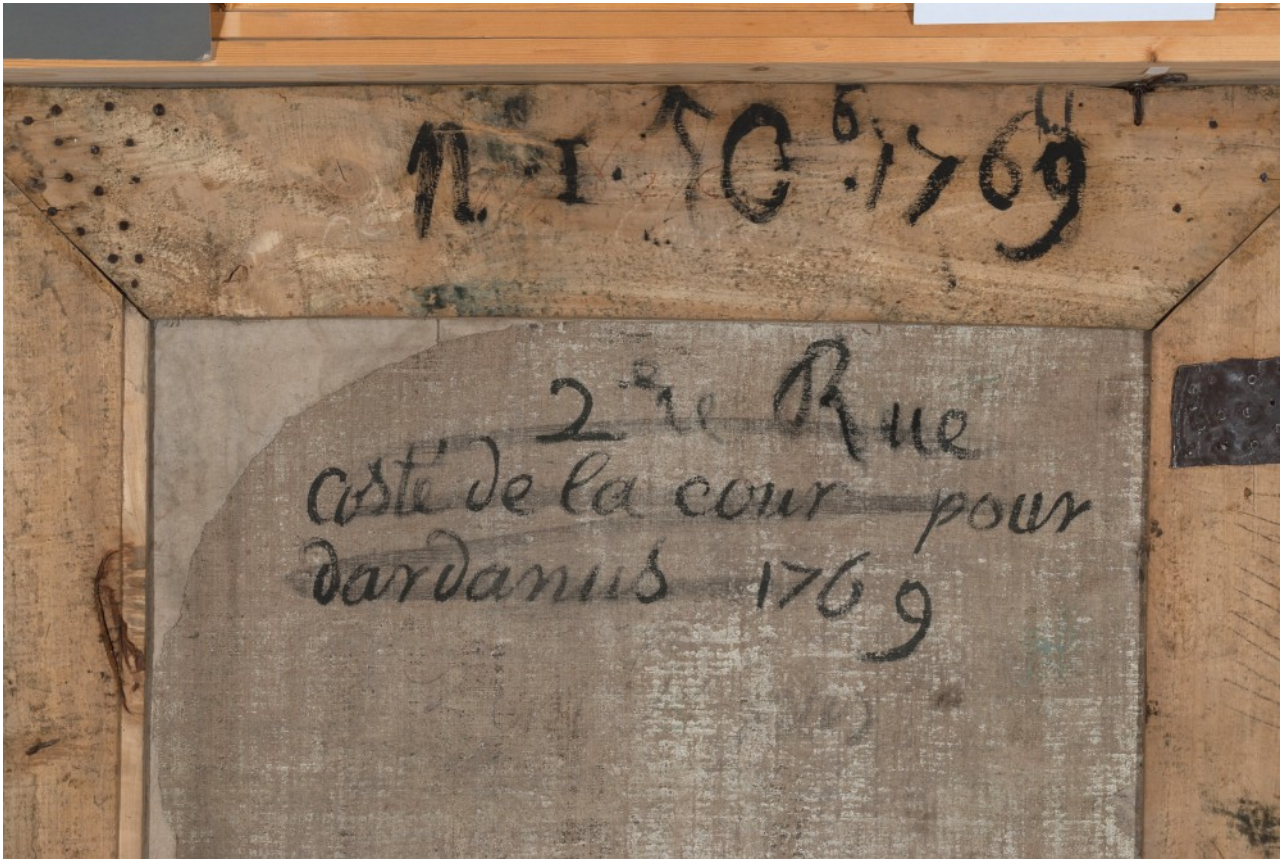 n. 1. 10 6 1769
2ere Rue
costé de la cour pour
dardanus 1769